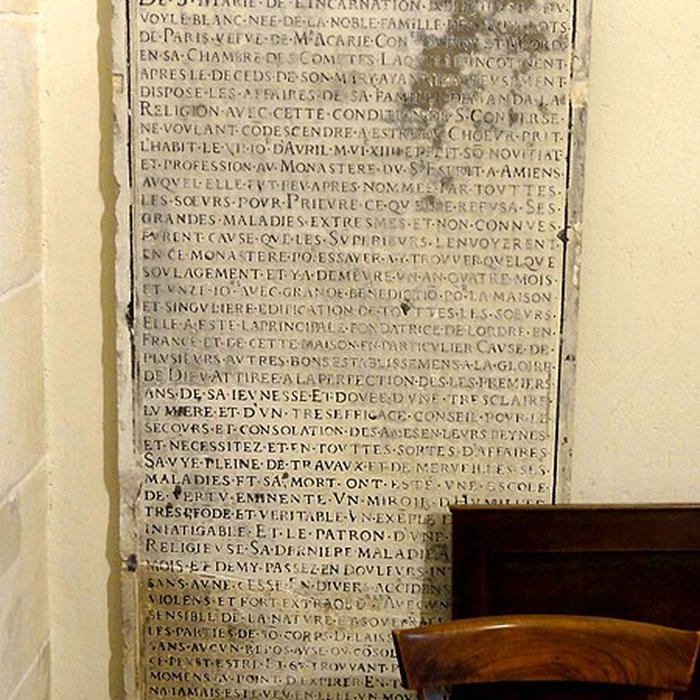 DE·S·MARIE·DE·L'INCARNATION
VOYLE·BLANC·NEE·DE·LA·NOBLE·FAMILLE·
DE·PARIS·VEFVE·DE·Mʳ·ACARIE·
EN·SA·CHAMBRE·DES·COMPTES·LAQ
APRES·LE·DECEDS·DE·SON·MARY·
DISPOSE·LES·AFFAIRES·DE·SA·FAMILLE·DEMANDA·LA
RELIGION·AVEC·CETTE·CONDITION·DE·S·CONVERSE·
NE·VOVLANT·CODESCENDRE·A·ESTRE·DV·CHOEVR·PRIT·
L'HABIT·LE D'AVRIL·M·VI·XIIII·ET·FEIT·SŌ·NOVITIAT
ET·PROFESSION·AV·MONASTERE·DV·Sᵗ·ESPRIT·A·AMIENS·
AVQVEL·ELLE·FVT·PEV·APRES·NOMMEE·PAR·TOVTTES·
LES·SOEVRS·POVR·PRIEVRE·CE·QV'ELLE·REFVSA·SES·
GRANDES·MALADIES·EXTRESMES·ET·NON·CONNVES·
FVRENT·CAVSE·QVE·LES·SVPERIEVRS·L'ENVOYERENT·
EN·CE·MONASTERE·PO·ESSAYER·A·Y·TROVVER·QVELQVE
SOVLAGEMENT·ET·Y·A·DEMEVRE·VN·AN·QVATRE·MOIS·
ET·VNZE·IOˢ·AVEC·GRANDE·BENEDICTIŌ·PO·LA·MAISON·
ET·SINGVLIERE·EDIFICATION·DE·TOVTTES·LES·SOEVRS·
ELLE·A·ESTE·LA·PRINCIPALE·FONDATRICE·DE·L'ORDRE·EN·
FRANCE·ET·DE·CETTE·MAISON·EN·PARTICVLIER·CAVSE·DE·
PLVSIEVRS·AVTRES·BONS·ESTABLISSEMENS·A·LA·GLOIRE·
DE·DIEV·ATTIREE·A·LA·PERFECTION·DES·LES·PREMIERS
ANS·DE·SA·IEVNESSE·ET·DOVEE·D'VNE·TRESCLAIRE·
LVMIERE·ET·D'VN·TRESEFFICACE·CONSEIL·POVR·LE
SECOVRS·ET·CONSOLATION·DES·AMES·EN·LEVRS·PEYNES·
ET·NECESSITEZ·ET·EN·TOVTTES·SORTES·D'AFFAIRES
SA·VYE·PLEINE·DE·TRAVAVX·ET·DE·MERVEILLES·SES·
MALADIES·ET·SA·MORT·ONT·ESTÉ·VNE·ESCOLE·
DE·VERTV·EMINENTE·VN·MIROIR·D'HVMILITE
TRESPFODE·ET·VERITABLE·VN·EXĒPLE
INFATIGABLE·ET·LE·PATRON·D'VNE
RELIGIEVSE·SA·DERNIERE·MALADIE·A
MOIS·ET·DEMY·PASSEZ·EN·DOVLEVRS·
SANS·AVNE·CESSE·EN·DIVERS·ACCIDENS
VIOLENS·ET·FORT·EXTRAORD·AVEC·VN
SENSIBLE·DE·LA·NATVRE·ET·
LES·PARTIES·DE·SŌ·CORPS·DELAISS
SANS·AVCVN·REPOS·AYSE·OV·CŌSOL
CE·PEVST·ESTRE·ET·SE·TROVVANT·P
MOMENS·AV·POINT·D'EXPIRER·EN·T
NA·IAMAIS·ESTE·VEV·EN·ELLE·VN·MOV